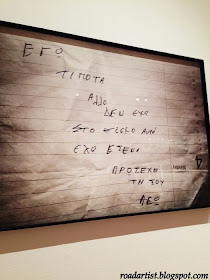 ΕΓΟ
ΤΙΠΟΤΑ
ΑλλΟ
ΔΕΝ ΕΧΟ
ΣΤΟ
ΕΧΟ ΕΣΕΝΑ
ΠΡΟΣΕΧΕ
ΤΗ ΣΟΥ
ΛΕΟ
roadartist.blogspot.com